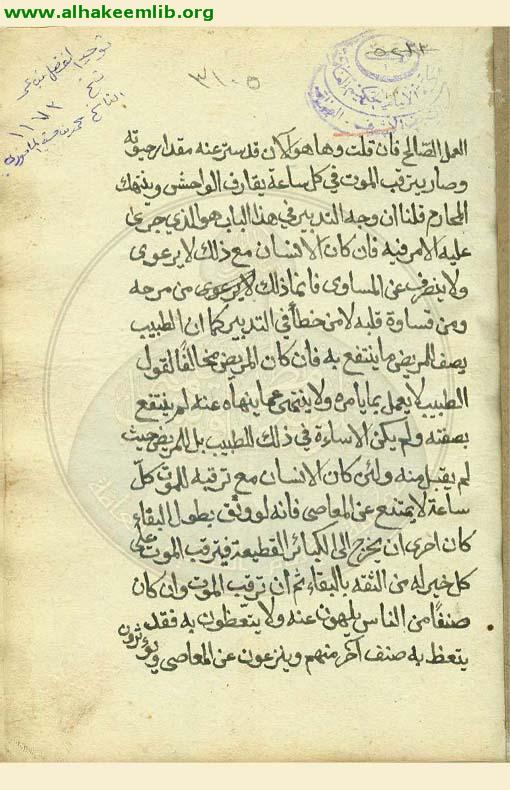 www.alhakeemlib.org
توحيد المفضل بن عمر
نسخ
١١٧٣
الناسخ محمد بن
٣١٠٥
العمل الصّالح فان قلت وها هو الآن قد ستر عنه مقدار حيوته
وصار يترقب الموت في كل ساعة يقارف الواحش وينتهك
المحارم قلنا ان وجه التدبير في هذا الباب هو الذي جرى
عليه الامر فيه فان كان الانسان مع ذلك لا يرعوى
ولا ينصرف عن المساوى فانما ذلك من مرحه
ومن قساوة قلبه لا من خطأ في التدبير كما ان الطبيب
يصف للمريض ما ينتفع به فان كان المريض مخالفًا لقول
الطبيب لا يعمل بما يامره ولا ينتهى عما ينهاه عنه لم ينتفع
بصفته ولم يكن الاساءة في ذلك للطبيب بل للمريض حيث
لم يقبل منه ولئن كان الانسان مع ترقبه للموت كلّ
ساعة لا يمتنع عن المعاصى فانه لو وثق بطول البقاء
كان احرى ان يخرج الى الكبائر القطيعة فترقب الموت على
كل خير له من الثقه بالبقاء ثم ان ترقب الموت وان كان
صنفًا من الناس يلهون عنه ولا يتعظون به فقد
يتعظ به صنف آخر منهم وينزعون عن المعاصى ويؤثرون